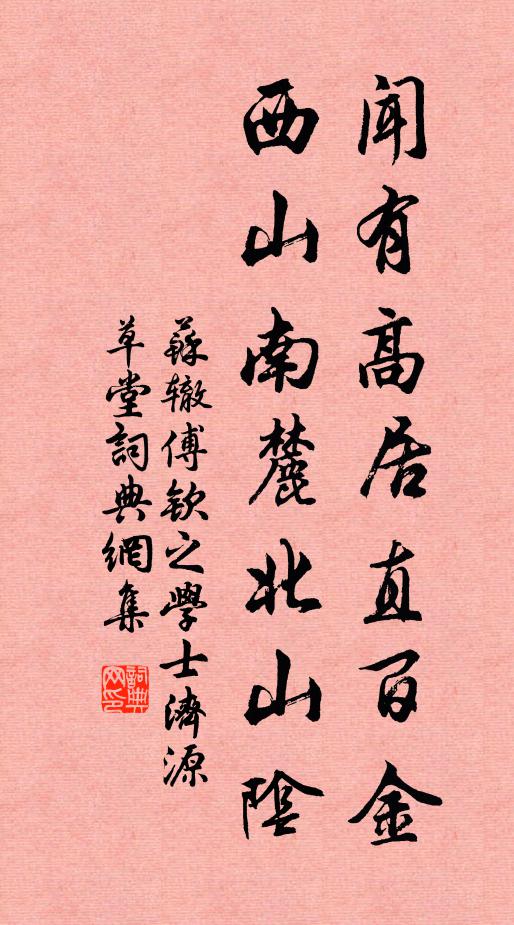 聞有高居直百金
西山南麓北山陰
蘇轍傅欽之學士濟源
草堂詞典網集
詞典網印